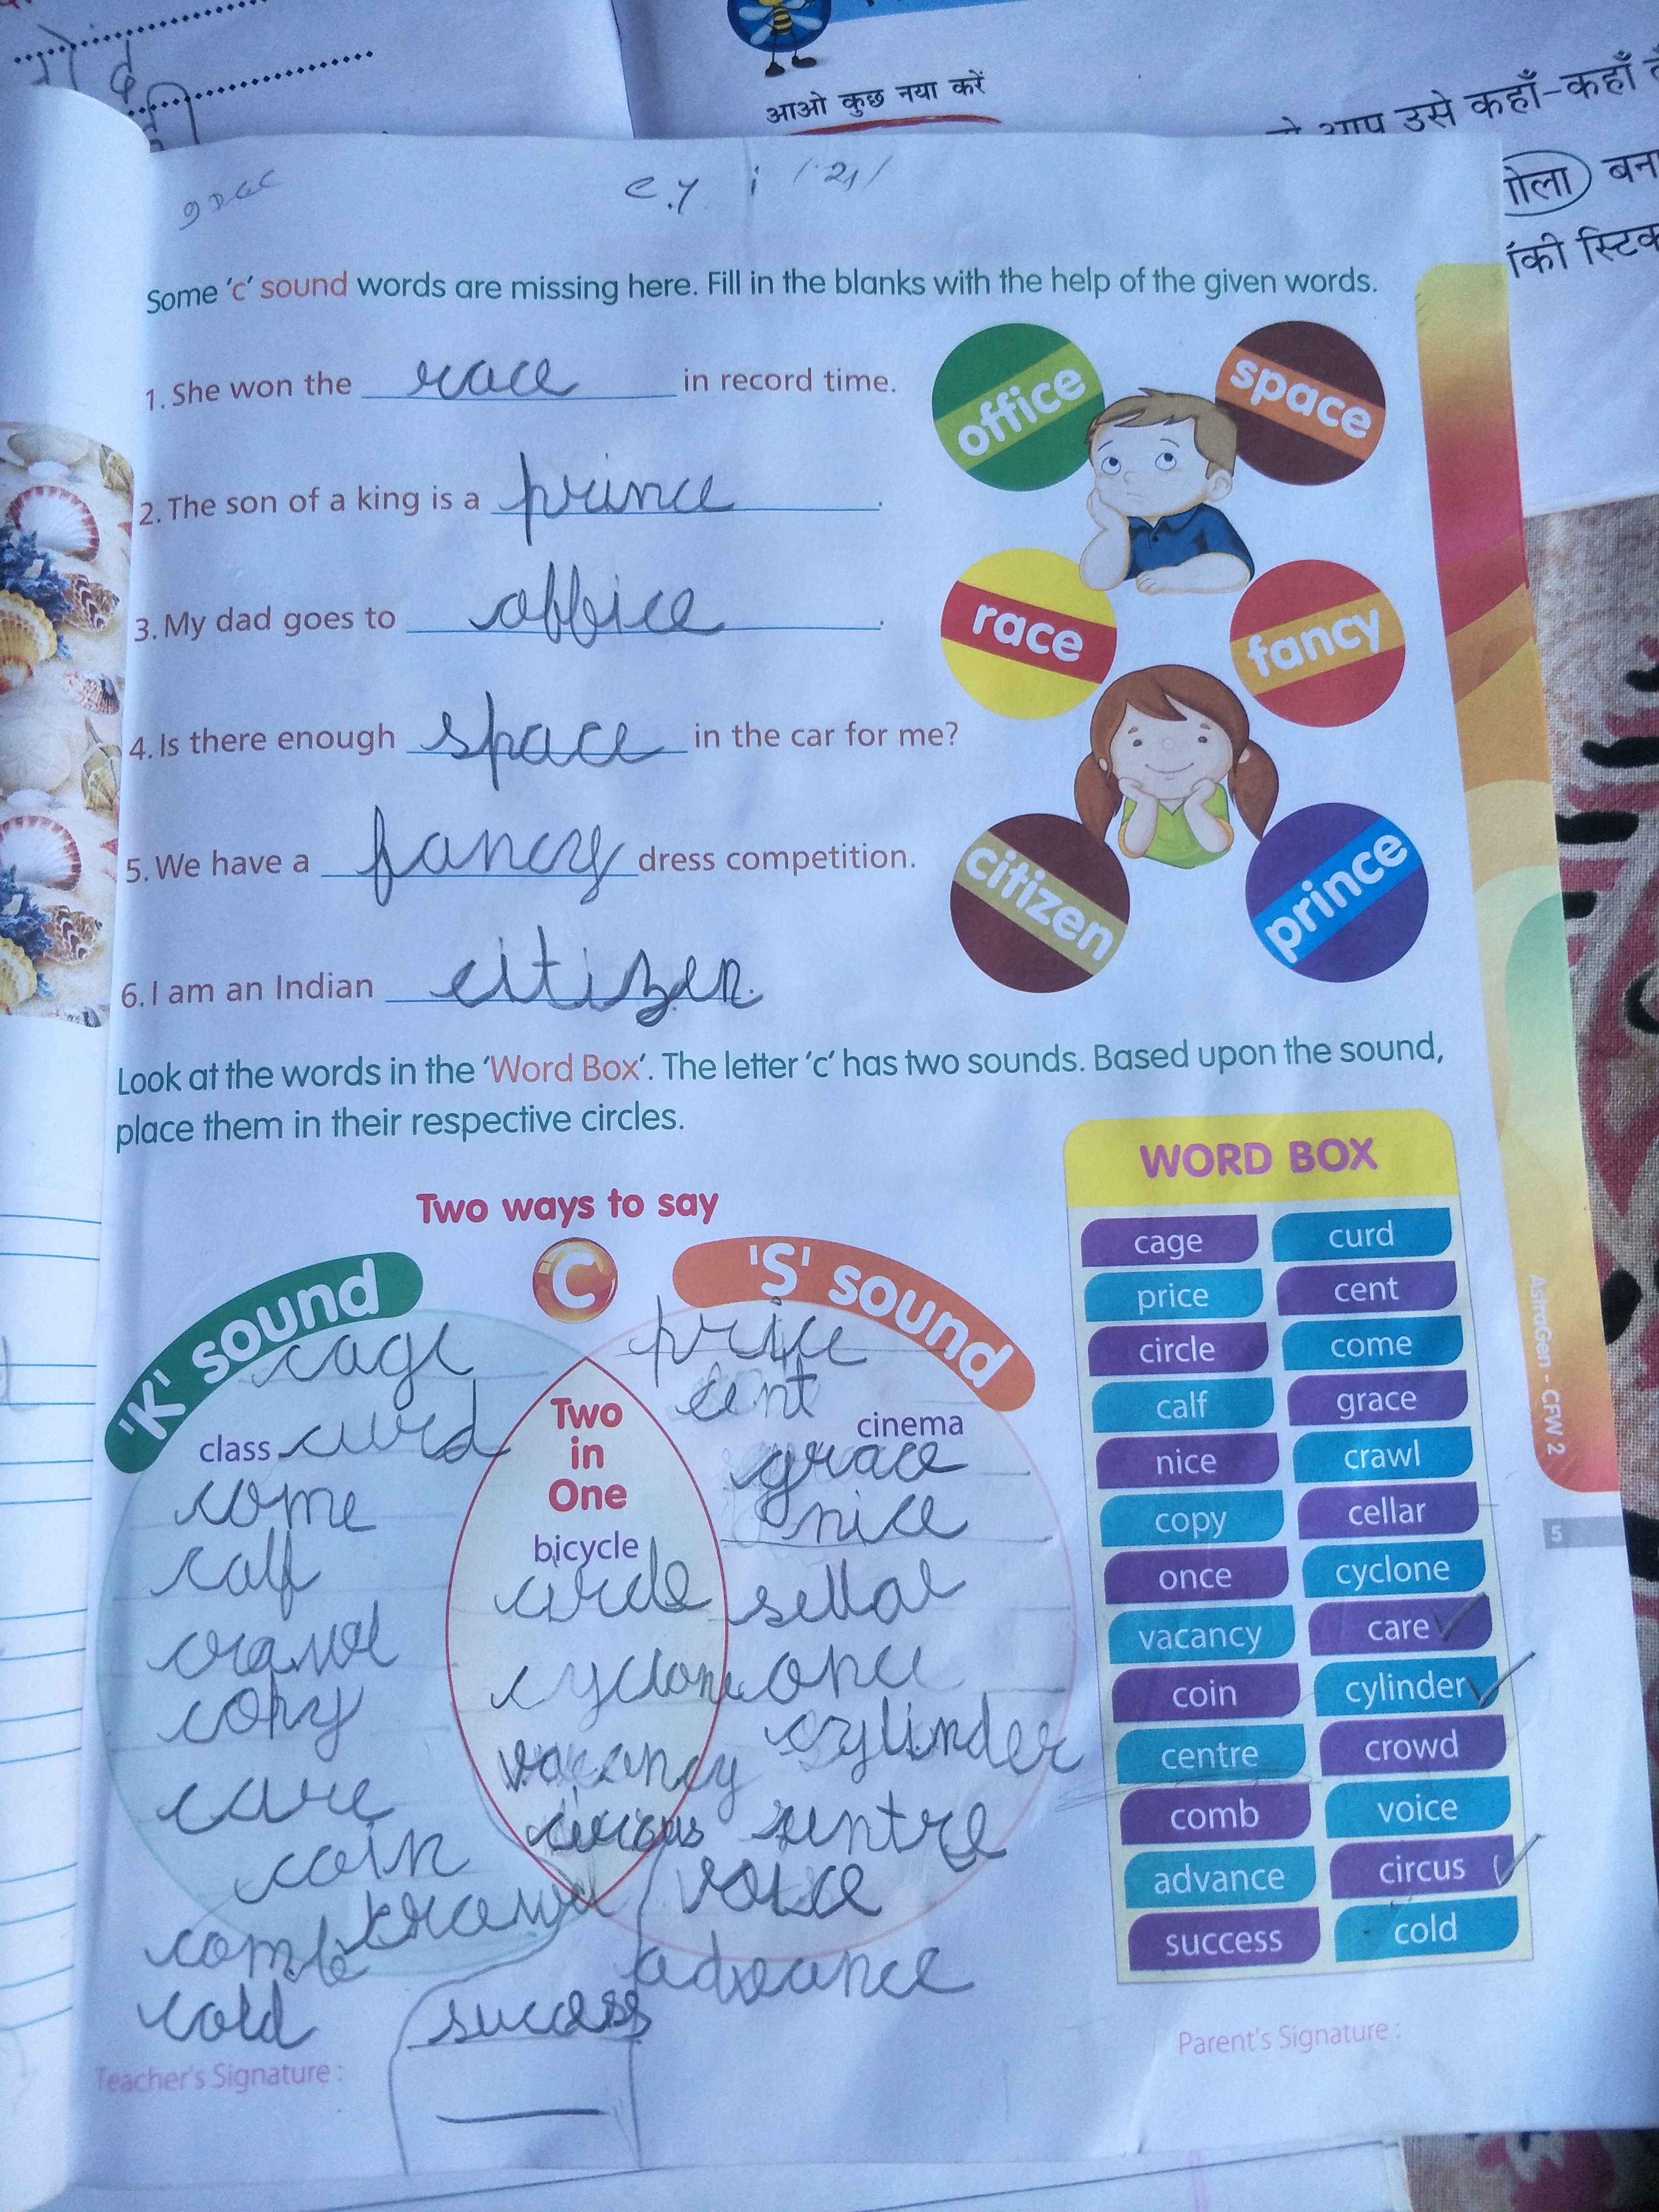 आओ कुछ नया करें
आप उसे कहाँ-कहाँ
गोला बना
Some 'c' sound words are missing here. Fill in the blanks with the help of the given words.
1. She won the race in record time.
2. The son of a king is a prince.
3. My dad goes to office.
4. Is there enough space in the car for me?
5. We have a fancy dress competition.
6. I am an Indian citizen.
office
space
race
fancy
citizen
prince
Look at the words in the 'Word Box'. The letter 'c' has two sounds. Based upon the sound,
place them in their respective circles.
Two ways to say
C
'K' sound
cage
class curd
come
calf
copy
care
coin
comb
cold
Two
in
One
bicycle
circle
cyclone
vacancy
success
'S' sound
price
cent
cinema
grace
nice
sellar
once
cylinder
sentre
voice
advance
WORD BOX
cage curd
price cent
circle come
calf grace
nice crawl
copy cellar
once cyclone
vacancy care
coin cylinder
centre crowd
comb voice
advance circus
success cold
Teacher's Signature :
Parent's Signature :
AstraGen - CFW 2
5